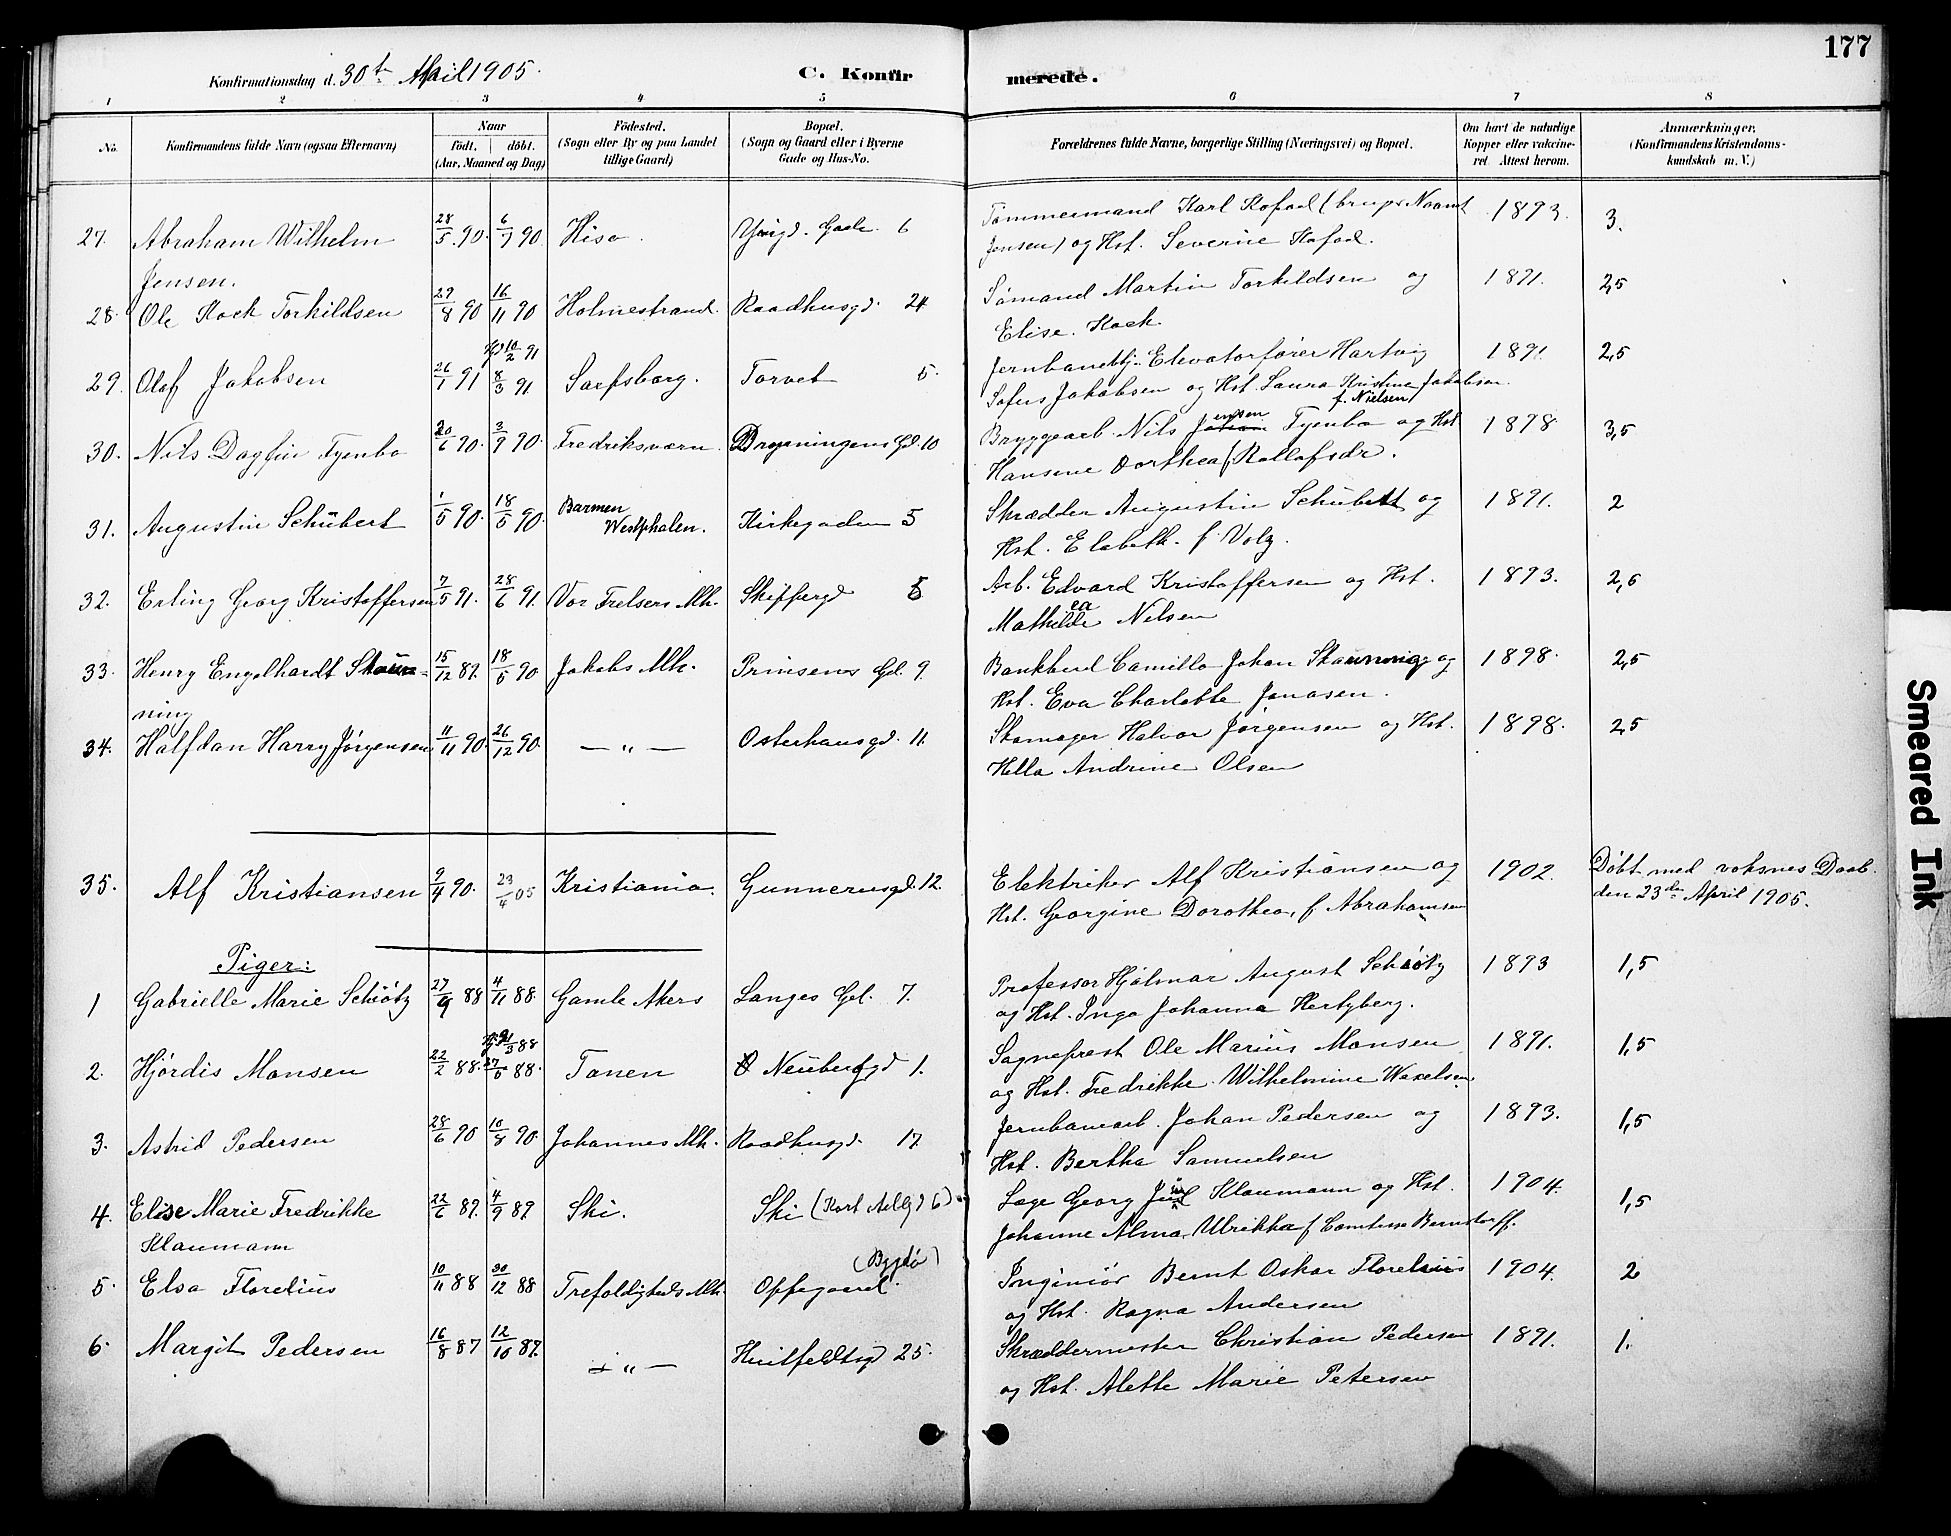 177
Konfirmationsdag d. 30te April 1905.
C. Konfirmerede.
1 2 3 4 5 6 7 8
No.
Konfirmandens fulde Navn (ogsaa Efternavn)
Naar
födt. döbt.
(Aar, Maaned og Dag)
Födested.
(Sogn eller By og paa Landet
tillige Gaard)
Bopæl.
(Sogn og Gaard eller i Byerne
Gade og Hus-No.
Forældrenes fulde Navne, borgerlige Stilling (Næringsvei) og Bopæl.
Om havt de naturlige
Kopper eller vakcine-
ret. Attest herom.
Anmærkninger,
(Konfirmandens Kristendoms-
kundskab m. V.)
27. Abraham Wilhelm 28/5 90. 6/7 90 Hisø. Gade 6 Tømmermand Karl Hofod (bruger Navnet 1893. 3.
Jensen. Jensen) og Hst. Severine Hofod.
28. Ole Hock Torkildsen 29/8 90 16/11 90 Holmestrand. Raadhusgd. 24 Sømand Martin Torkildsen og 1891. 2,5
Elise Hock
29. Olaf Jakobsen 26/1 91 Hjd 10/2 91 8/3 91 Sarpsborg. Torvet 5. Jernbanebtj. Elevatorfører Hartvig 1891. 2,5
Sofus Jakobsen og Hst. Laura Kristine Jakobsen f. Nielsen
30. Nils Dagfin Tyenbo 20/6 90. 3/9 90. Fredriksværn. Dronningens Gd. 10 Bryggearb. Nils Jensen Tyenbo og Hst 1898 3,5
Hansine Dorthea (Rollafsdr.
31. Augustin Schübert 1/5 90. 18/5 90. Barmen Westphalen. Kirkegaden 5 Skrædder Augustin Schübert og 1891. 2
Hst. Elabeth. f. Volz.
32. Erling Georg Kristoffersen 7/5 91. 28/6 91. Vor Frelsers Mh. Skippergd 5 Arb. Edvard Kristoffersen og Hst. 1893. 2,6
Mathea Nelsen
33. Henry Engelhardt Skaun- 15/12 89. 18/5 90 Jakobs Mh. Prinsens Gd. 9. Bankbud Camillo Johan Skaunning og 1898. 2,5
ning Hst. Eva Charlotte Jonasen.
34. Halfdan Harry Jørgensen 11/11 90. 26/12 90. — „ — Osterhausgd. 11. Skomager Halvor Jørgensen og Hst. 1898. 2,5
Hella Andrine Olsen
35. Alf Kristiansen 9/4 90. 23/4 05 Kristiania. Gunnerusgd. 12. Elektriker Alf Kristiansen og 1902. Döbt med voksnes Daab
Hst. Georgine Dorothea, f. Abrahamsen den 23de April 1905.
Piger:
1 Gabrielle Marie Schiøtz 27/9 88 4/11 88. Gamle Akers Langes Gd. 7. Professor Hjalmar August Schiøtz 1893 1,5
og Hst. Inga Johanna Hertzberg.
2. Hjördis Monsen 22/2 88. Hjd 21/3 88 27/5 88. Tanen O Neubergd 1. Sogneprest Ole Marius Monsen 1891. 1,5
og Hst. Fredrikke Wilhelmine Wexelsen
3. Astrid Pedersen 28/6 90 10/8 90. Johannes Mh. Raadhusgd. 17. Jernbanearb. Johan Pedersen og 1893. 1,5
Hst. Bertha Samuelsen
4. Elise Marie Fredrikke 22/6 89. 4/9 89 Ski. Ski (Kort Adlgd 6) Læge Georg Juul Klaumann og Hst. 1904. 1,5
Klaumann Johanne Alma Ulrikka f. Comtesse Bernstorff.
5. Elsa Florelius 10/11 88 30/12 88 Trefoldigheds Mh. Oppegaard. (Bygdø) Inginiør Bernt Oskar Florelius 1904. 2
og Hst. Ragna Andersen
6. Margit Pedersen 16/8 87 12/10 87. — „ — Huitfeldtsgd 25. Skræddermester Christian Pedersen 1891. 1.
og Hst. Alette Marie Petersen
Smeared Ink